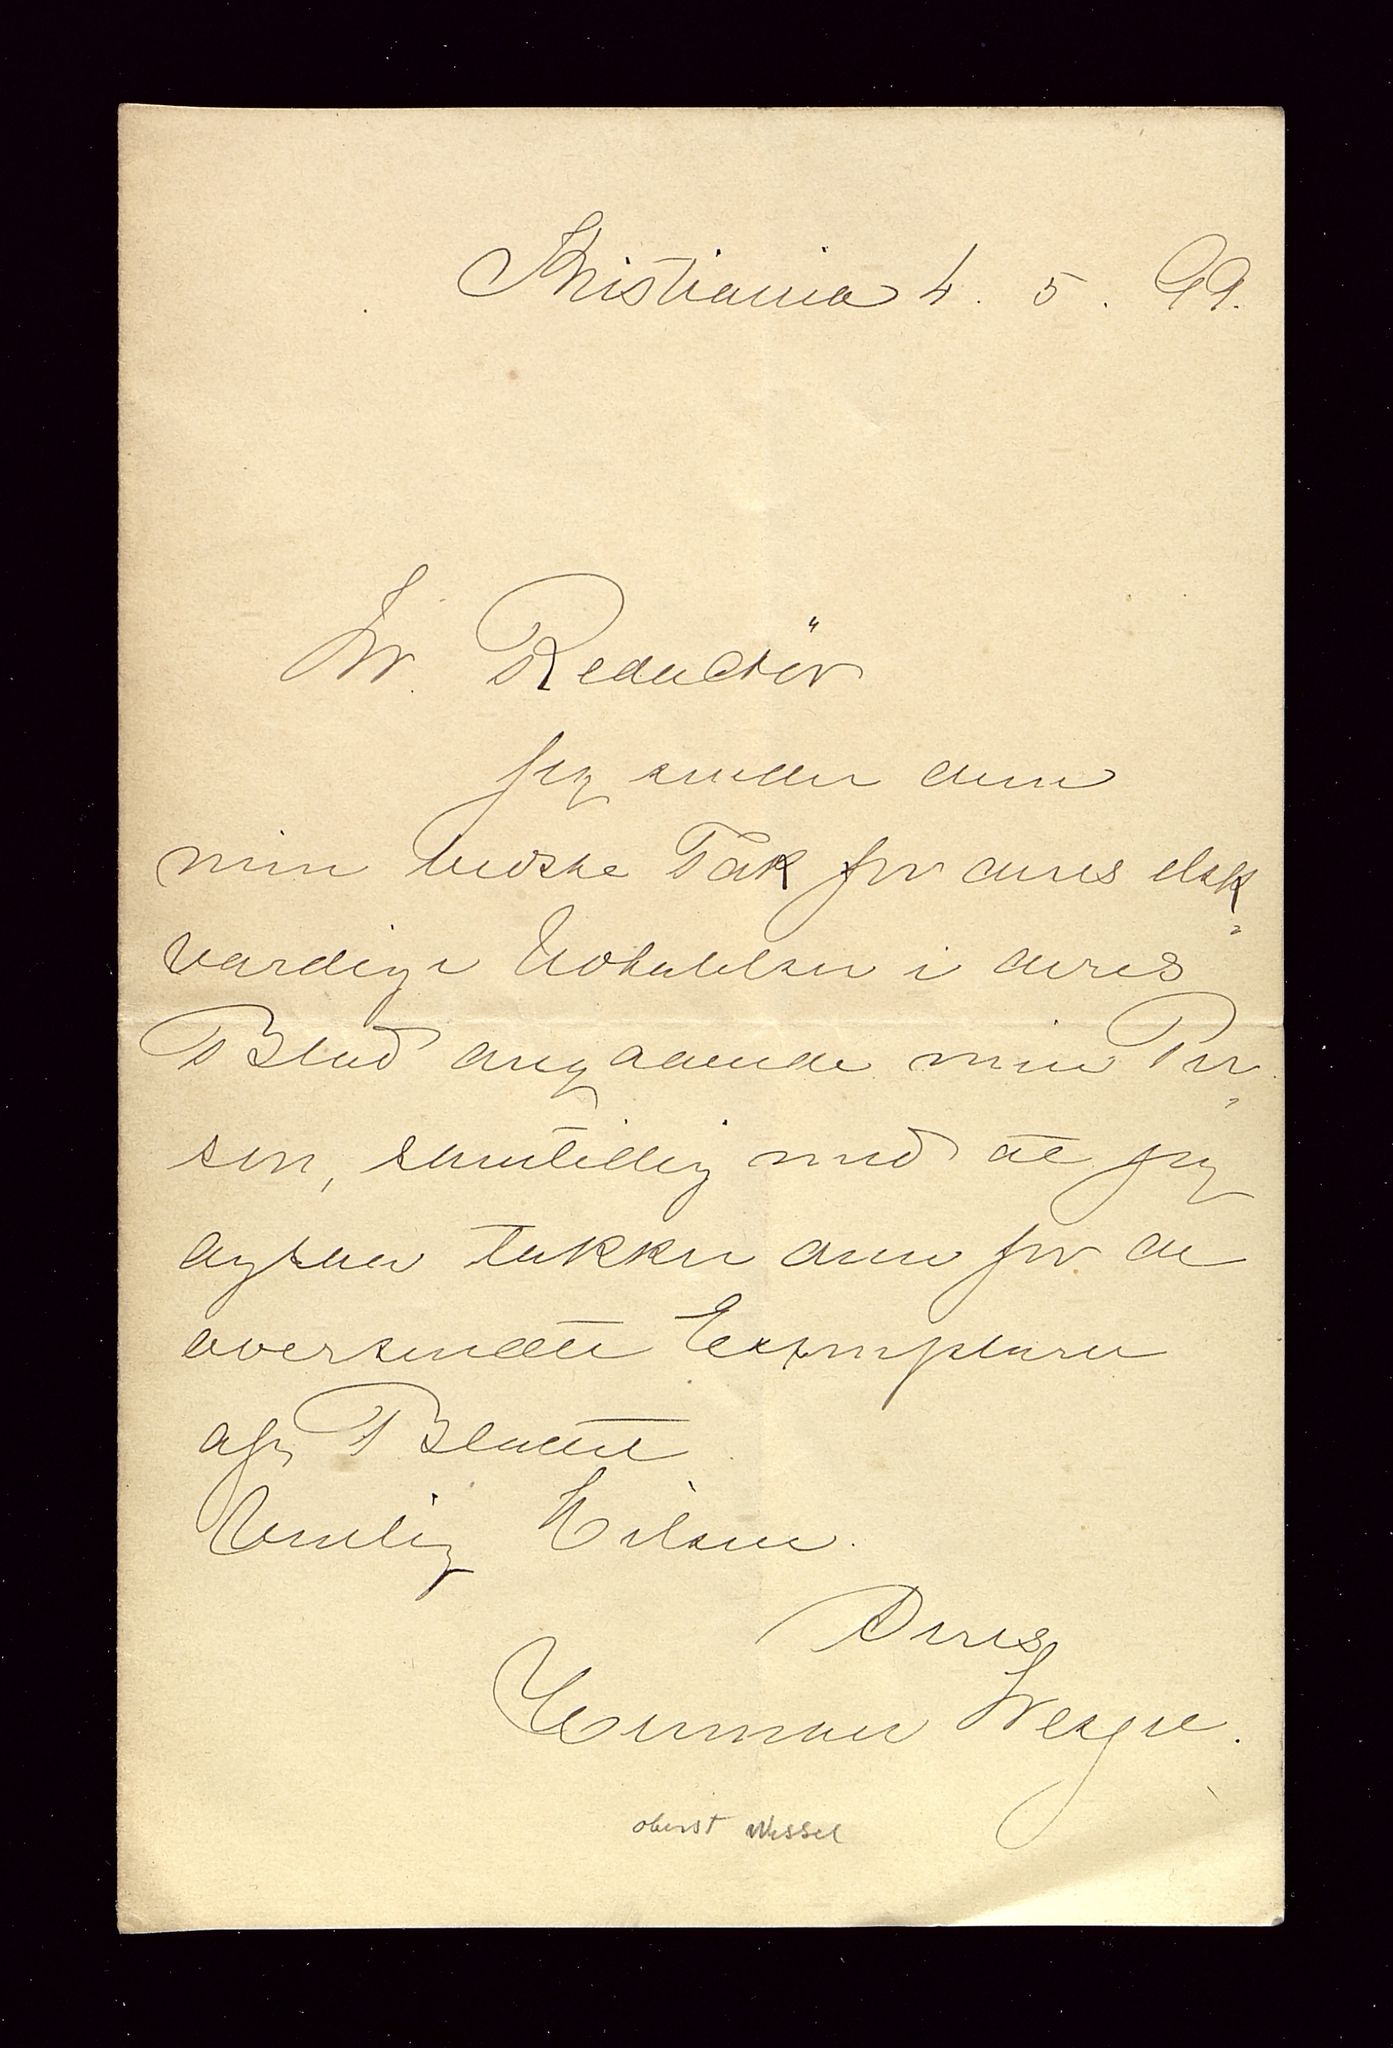 Kristiania 4. 5. 99.
Hr. Redactör
Jeg sender dem
min bedste Tak for deres elsk
værdige Udtalelser i deres
Blad angaaende min Per
son, samtidig med at jeg
ogsaa takker dem for de
oversendte Exemplarer
af Bladet.
Venlig Hilsen.
Deres
Herman Wessel.
oberst Wessel